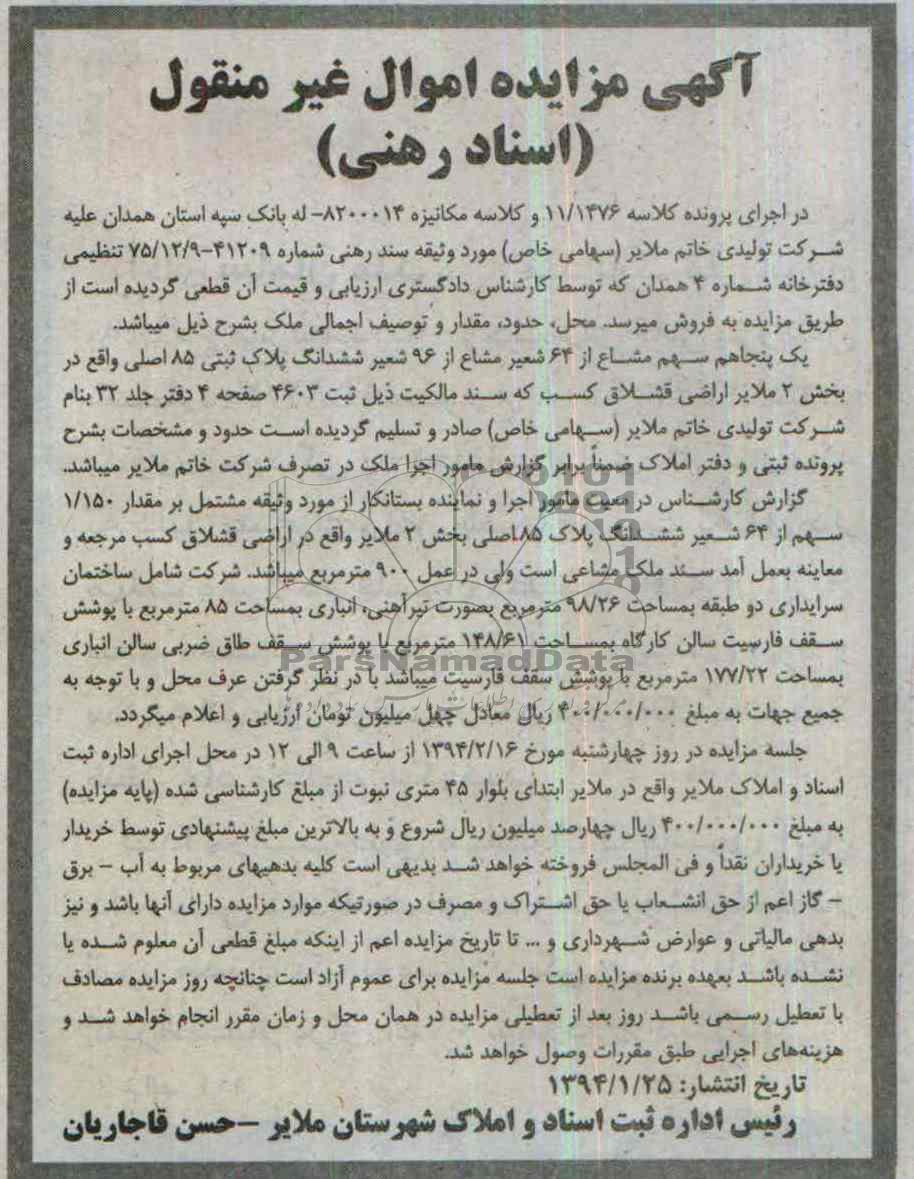 آگهی مزایده اموال غیر منقول
(اسناد رهنی)
در اجرای پرونده کلاسه ۱۱/۱۴۷۶ و کلاسه مکانیزه ۸۲۰۰۰۱۴- له بانک سپه استان همدان علیه
شرکت تولیدی خاتم ملایر (سهامی خاص) مورد وثیقه سند رهنی شماره ۴۱۲۰۹-۷۵/۱۲/۹ تنظیمی
دفترخانه شماره ۴ همدان که توسط کارشناس دادگستری ارزیابی و قیمت آن قطعی گردیده است از
طریق مزایده به فروش میرسد. محل، حدود، مقدار و توصیف اجمالی ملک بشرح ذیل میباشد.
یک پنجاهم سهم مشاع از ۶۴ شعیر مشاع از ۹۶ شعیر ششدانگ پلاک ثبتی ۸۵ اصلی واقع در
بخش ۲ ملایر اراضی قشلاق کسب که سند مالکیت ذیل ثبت ۴۶۰۳ صفحه ۴ دفتر جلد ۳۲ بنام
شرکت تولیدی خاتم ملایر (سهامی خاص) صادر و تسلیم گردیده است حدود و مشخصات بشرح
پرونده ثبتی و دفتر املاک ضمناً برابر گزارش مامور اجرا ملک در تصرف شرکت خاتم ملایر میباشد.
گزارش کارشناس در معیت مامور اجرا و نماینده بستانکار از مورد وثیقه مشتمل بر مقدار ۱/۱۵۰
سهم از ۶۴ شعیر ششدانگ پلاک ۸۵ اصلی بخش ۲ ملایر واقع در اراضی قشلاق کسب مرجعه و
معاینه بعمل آمد سند ملک مشاعی است ولی در عمل ۹۰۰ مترمربع میباشد. شرکت شامل ساختمان
سرایداری دو طبقه بمساحت ۹۸/۲۶ مترمربع بصورت تیرآهنی، انباری بمساحت ۸۵ مترمربع با پوشش
سقف فارسیت سالن کارگاه بمساحت ۱۴۸/۶۱ مترمربع با پوشش سقف طاق ضربی سالن انباری
بمساحت ۱۷۷/۲۲ مترمربع با پوشش سقف فارسیت میباشد با در نظر گرفتن عرف محل و با توجه به
جمیع جهات به مبلغ ۴۰۰/۰۰۰/۰۰۰ ریال معادل چهل میلیون تومان ارزیابی و اعلام میگردد.
جلسه مزایده در روز چهارشنبه مورخ ۱۳۹۴/۲/۱۶ از ساعت ۹ الی ۱۲ در محل اجرای اداره ثبت
اسناد و املاک ملایر واقع در ملایر ابتدای بلوار ۴۵ متری نبوت از مبلغ کارشناسی شده (پایه مزایده)
به مبلغ ۴۰۰/۰۰۰/۰۰۰ ریال چهارصد میلیون ریال شروع و به بالاترین مبلغ پیشنهادی توسط خریدار
یا خریداران نقداً و فی المجلس فروخته خواهد شد بدیهی است کلیه بدهیهای مربوط به آب – برق
– گاز اعم از حق انشعاب یا حق اشتراک و مصرف در صورتیکه موارد مزایده دارای آنها باشد و نیز
بدهی مالیاتی و عوارض شهرداری و ... تا تاریخ مزایده اعم از اینکه مبلغ قطعی آن معلوم شده یا
نشده باشد بعهده برنده مزایده است جلسه مزایده برای عموم آزاد است چنانچه روز مزایده مصادف
با تعطیل رسمی باشد روز بعد از تعطیلی مزایده در همان محل و زمان مقرر انجام خواهد شد و
هزینه‌های اجرایی طبق مقررات وصول خواهد شد.
تاریخ انتشار: ۱۳۹۴/۱/۲۵
رئیس اداره ثبت اسناد و املاک شهرستان ملایر –حسن قاجاریان
ParsNamadData